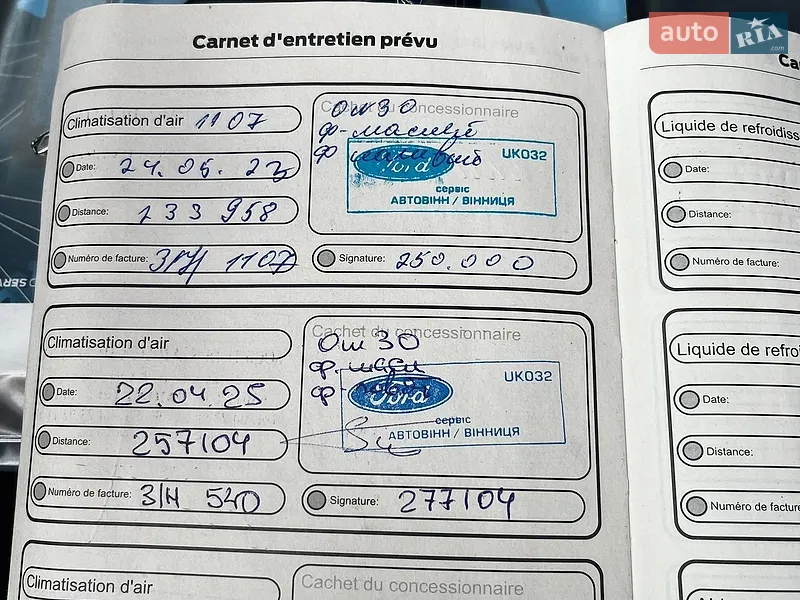 auto RIA .com
Carnet d'entretien prévu
Climatisation d'air 1107
Cachet du concessionnaire
Ом 30
ф-масляй
ф
Ford
UK032
сервіс
АВТОВІНН / ВІННИЦЯ
Date: 24.06.23
Distance: 233 958
Numéro de facture: З/Н 1107
Signature: 250.000
Climatisation d'air
Cachet du concessionnaire
Ом 30
ф-
ф-
Ford
UK032
сервіс
АВТОВІНН / ВІННИЦЯ
Date: 22.04 25
Distance: 257104
Numéro de facture: З/Н 540
Signature: 277104
Climatisation d'air
Cachet du concessionnaire
Ca
Liquide de refroidiss
Date:
Distance:
Numéro de facture:
Liquide de refroi
Date:
Distance:
Numéro de facture